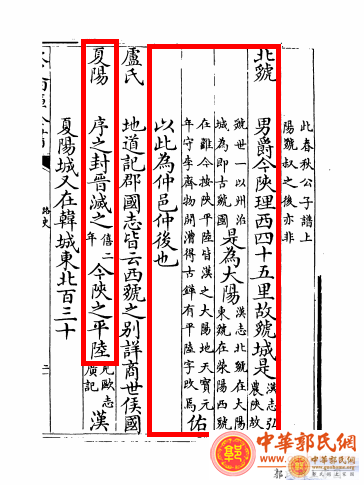 此春秋公子譜上
陽虢叔之後亦非
北虢 男爵今陜理西四十五里故虢城是漢志弘
農陜故
虢世一以州治
城為即古虢國是為大陽漢志北虢在大陽
東虢在滎陽西虢
在雖今按陜平陸皆漢之大陽地天寶元
年守李齊物開漕得古鏵有平陸字改焉佑
以此為仲邑仲後也
盧氏 地道記郡國志皆云西虢之别詳商世侯國
夏陽 序之封晉滅之僖二
年今陜之平陸
廣記漢
夏陽城又在韓城東北百三十
路史
二
中華郭氏網